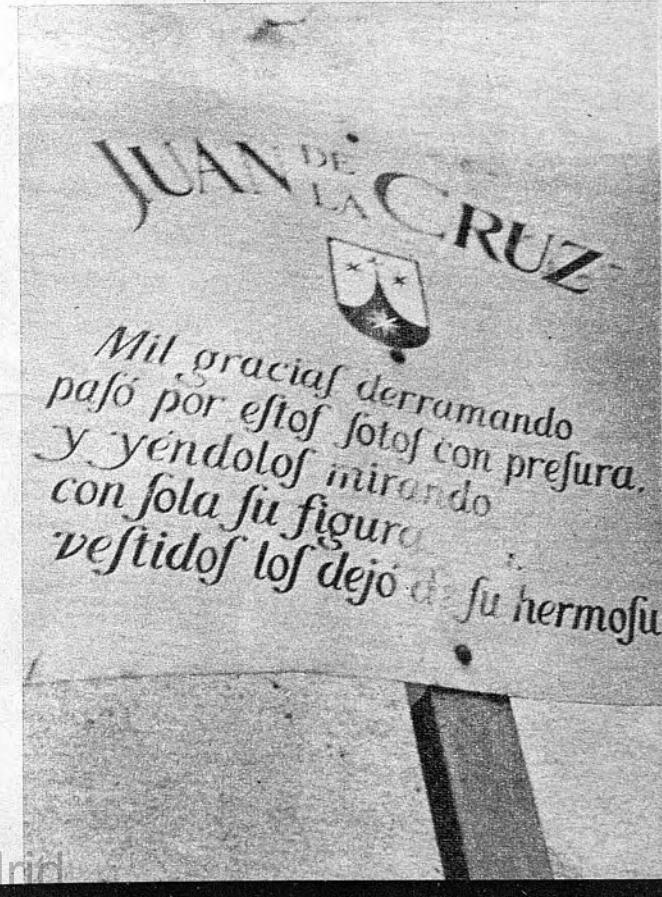 JUAN DE LA CRUZ
Mil graciaſ derramando
paſó por eſtoſ ſotoſ con preſura,
y yéndoloſ mirando
con ſola ſu figura
veſtidoſ loſ dejó de ſu hermoſu